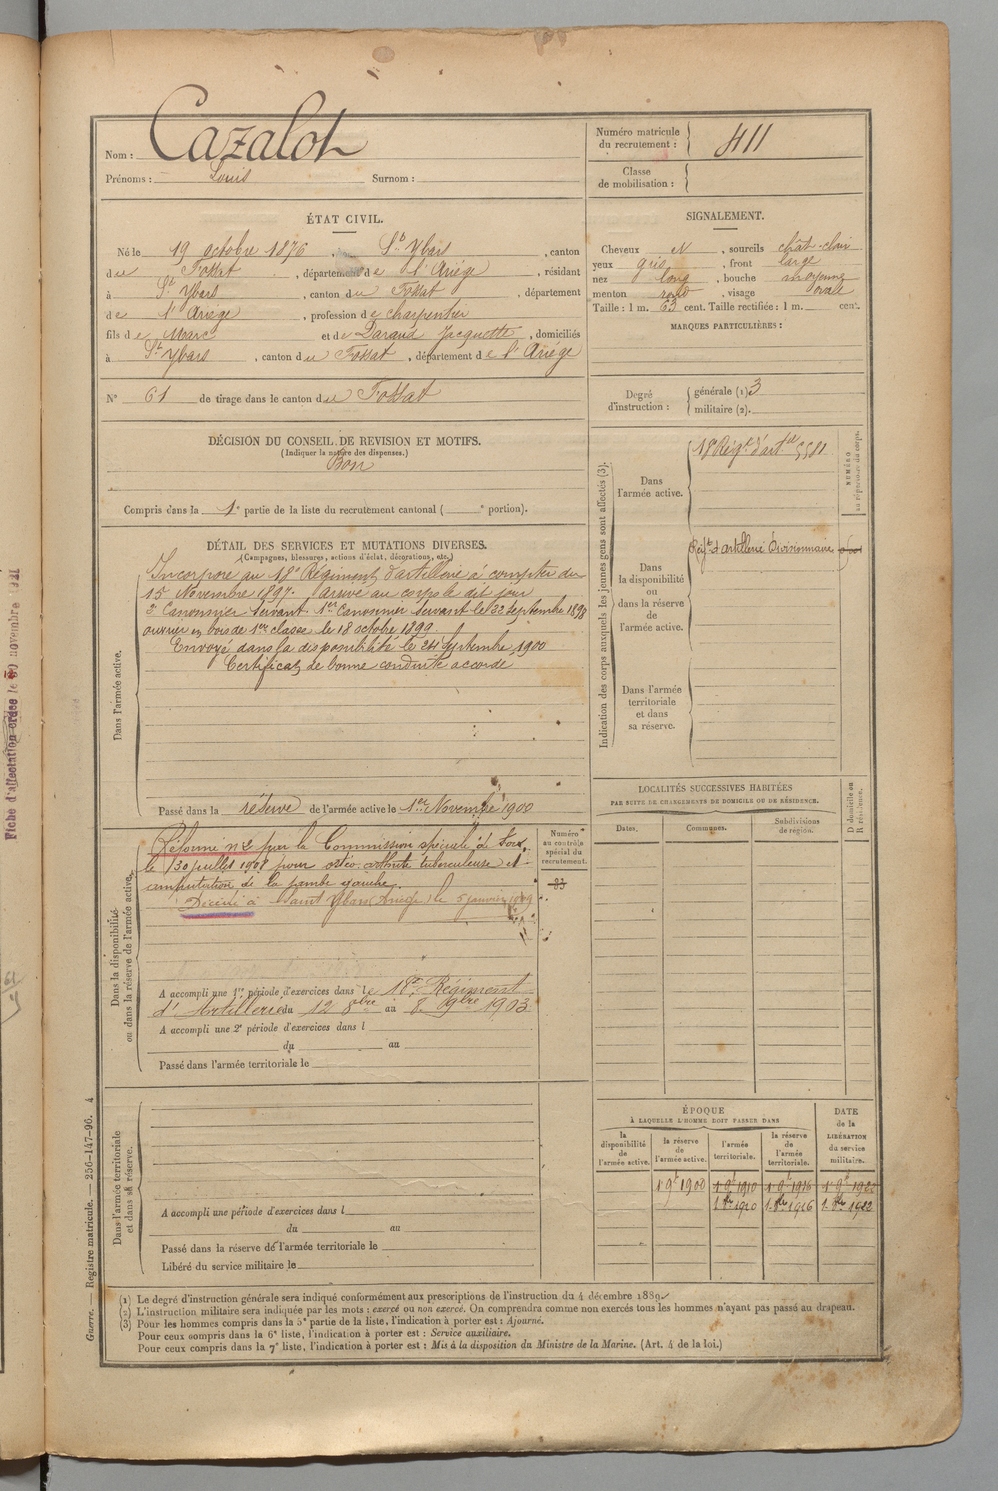 Cazalot
Nom :
Prénoms : Louis Surnom :
Numéro matricule du recrutement : 411
Classe de mobilisation :
ÉTAT CIVIL.
Né le 19 octobre 1876, à St Ybars, canton
du Fossat, département de l'Ariège, résidant
à St Ybars, canton du Fossat, département
de l'Ariège, profession de charpentier
fils de Marc et de Daraud Jacquette, domiciliés
à St Ybars, canton du Fossat, département de l'Ariège
N° 61 de tirage dans le canton du Fossat
SIGNALEMENT.
Cheveux N, sourcils chât-clair
yeux gris, front large
nez long, bouche moyenne
menton rond, visage ovale
Taille : 1 m. 63 cent. Taille rectifiée : 1 m. cent.
MARQUES PARTICULIÈRES :
Degré d'instruction :
générale (1) 3
militaire (2).
DÉCISION DU CONSEIL DE REVISION ET MOTIFS.
(Indiquer la nature des dispenses.)
Bon
Compris dans la 1e partie de la liste du recrutement cantonal ( e portion).
DÉTAIL DES SERVICES ET MUTATIONS DIVERSES.
(Campagnes, blessures, actions d'éclat, décorations, etc.)
Dans l'armée active.
Incorporé au 18e Régiment d'artillerie à compter du
15 Novembre 1897. arrivé au corps le dit jour
2e Canonnier Servant 1er Canonnier Servant le 22 Septembre 1898
ouvrier en bois de 1re classe le 18 octobre 1899.
Envoyé dans la disponibilité le 24 Septembre 1900
Certificat de bonne conduite accordé
Passé dans la réserve de l'armée active le 1er Novembre 1900
Dans la disponibilité ou dans la réserve de l'armée active.
Réformé n° 2 par la Commission spéciale de Foix,
le 30 juillet 1908 pour ostéo arthrite tuberculeuse et
amputation de la jambe gauche.
Décédé à Saint Ybars (Ariège) le 5 janvier
A accompli une 1re période d'exercices dans le 18e Régiment
d'Artillerie du 12 8bre au 8 9bre 1903
A accompli une 2e période d'exercices dans l
du au
Passé dans l'armée territoriale le
Numéro au contrôle spécial du recrutement.
83
Dans l'armée territoriale et dans sa réserve.
A accompli une période d'exercices dans l
du au
Passé dans la réserve de l'armée territoriale le
Libéré du service militaire le
Indication des corps auxquels les jeunes gens sont affectés (3).
NUMÉRO au répertoire du corps.
Dans l'armée active.
18e Régt d'artie 5581
Dans la disponibilité ou dans la réserve de l'armée active.
Régt d'artillerie Divisionnaire
Dans l'armée territoriale et dans sa réserve.
LOCALITÉS SUCCESSIVES HABITÉES
PAR SUITE DE CHANGEMENTS DE DOMICILE OU DE RÉSIDENCE.
Dates. Communes. Subdivisions de région. D domicile ou R résidence.
ÉPOQUE
À LAQUELLE L'HOMME DOIT PASSER DANS
DATE de la LIBÉRATION du service militaire.
la disponibilité de l'armée active. la réserve de l'armée active. l'armée territoriale. la réserve de l'armée territoriale.
1 9e 1900 1 9e 1910 1 9e 1916 1 9e 1922
1. 8bre 1910 1. 8bre 1916 1. 8bre 1922
(1) Le degré d'instruction générale sera indiqué conformément aux prescriptions de l'instruction du 4 décembre 1889.
(2) L'instruction militaire sera indiquée par les mots : exercé ou non exercé. On comprendra comme non exercés tous les hommes n'ayant pas passé au drapeau.
(3) Pour les hommes compris dans la 5e partie de la liste, l'indication à porter est : Ajourné.
Pour ceux compris dans la 6e liste, l'indication à porter est : Service auxiliaire.
Pour ceux compris dans la 7e liste, l'indication à porter est : Mis à la disposition du Ministre de la Marine. (Art. 4 de la loi.)
Guerre. — Registre matricule. — 256-147-96. 4
Fiche d'affectation créée le novembre